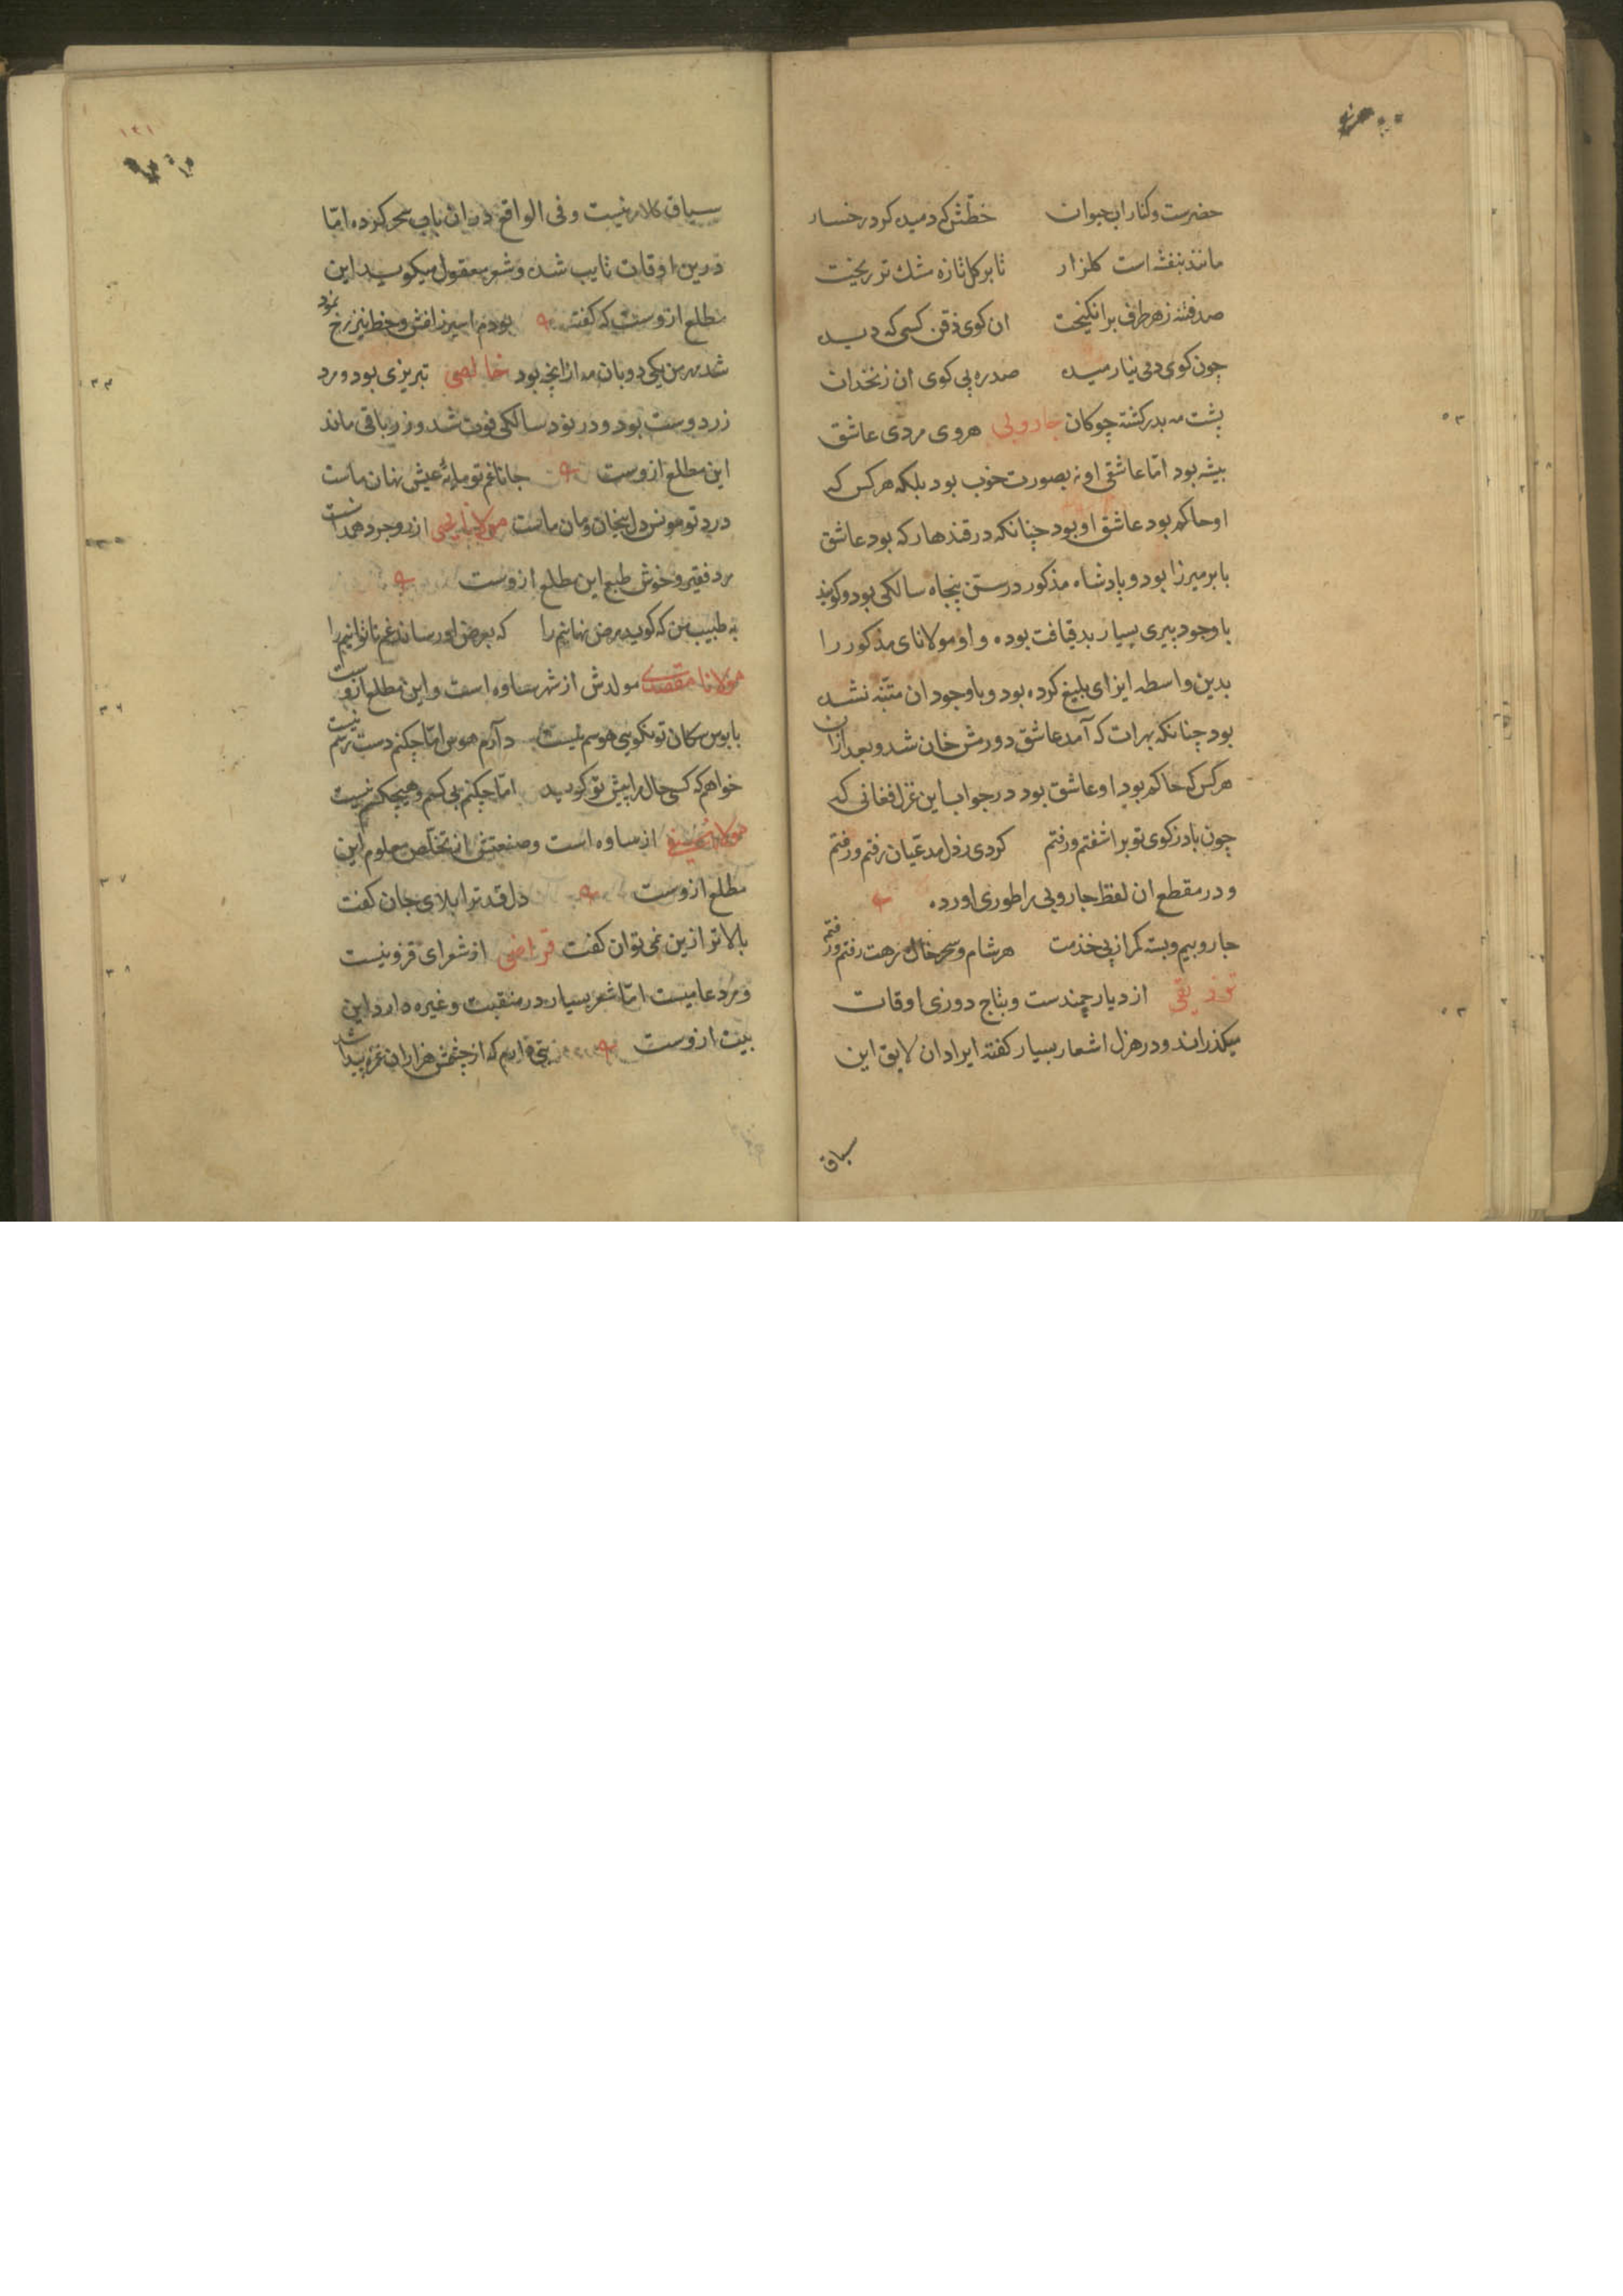 حضرست و کنار اب حیوان خطّش که دمیده کرد رخسار
مانند بنفشه است کلزار تا بر کل تازه مشك تر ریخت
صد فتنه زهر طرف برانکیخت ان کوی ذقن کسی که دیده
چون کوی دمی نیارمیده صدره پی کوی ان زنخدان
پشت مه بدر کشته چوکان جاروبی هروی مردی عاشق
پیشه بود امّا عاشقی او نه بصورت خوب بود بلکه هرکس که
او حاکم بود عاشق او بود چنانکه در قندهار که بود عاشق
بابر میرزا بود و پادشاه مذکور در سن پنجاه سالکی بود و کویند
باوجود پیری بسیار بدقیافت بوده و او مولانای مذکور را
بدین واسطه ایزای بلیغ کرده بود و باوجود ان متنبّه نشده
بود چنانکه بهرات که آمد عاشق دورمش خان شد و بعد ازان
هرکس که حاکم بود او عاشق بود در جواب این غزل فغانی که
چون باد ز کوی تو براشفتم و رفتم کردی ز دل مدعیان رفتم و رفتم
و در مقطع ان لفظ جاروبی را طوری اورده
جاروبیم و بسته کمر از پی خدمت هر شام و سحر خاك رهت رفتم و رفتم
از دیار چندست و بتاج دوزی اوقات
میکذراند و در هزل اشعار بسیار کفته ایراد ان لایق این
سیاق
۱۲۱
سیاق کلام نیست و فی الواقع دران باب سحر کرده امّا
درین اوقات تایب شده و شعر معقول میکوید این
مطلع ازوست که کفته بودم اسیر زلفش و خط نیز رخ نمود
شد مهر من یکی دو بان مه ازانچه بود خالصی تبریزی بود و مرد
زردوست بود و در نود سالکی فوت شد و زر باقی ماند
این مطلع ازوست جانا غم تو مایهٔ عیش نهان ماست
درد تو مونس دل بیخان و مان ماست مولانا از وجرد همدانست
مرد فقیر و خوش طبع این مطلع ازوست
به طبیب من که کوید مرض نهانیم را که بعرض او رساند غم ناتوانیم را
مولانا مقصدی مولدش از شهر ساوه است و این مطلع ازوست
پابوس سکان تو نکویی هوسم نیست دارم هوس امّا چکنم دست رسم نیست
خواهم که کسی حال مرا پیش تو کوید امّا چکنم بی کسم و هیچکسم نیست
مولانا از ساوه است و صنعتش از تخلّص معلوم این
مطلع ازوست دل قد ترا بلای جان کفت
بالاتر ازین نمی توان کفت قراضی از شعرای قزوینیست
و مرد عامیست امّا شعر بسیار در منقبت و غیره دارد این
بیت ازوست بتی دارم که از چشمش هزاران غمزه پیدا شد